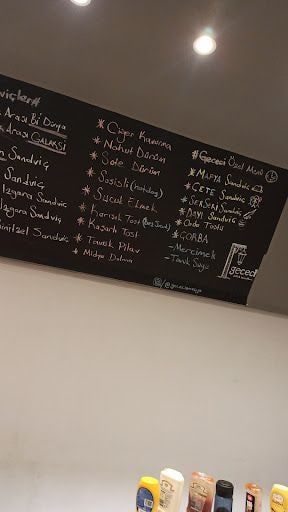 viçler#
Arası Bi Dünya
Arası GALAKSİ
Sandviç
Sandviç
Izgara Sandviç
Izgara Sandviç
Sandviç
* Ciğer Kavurma
* Nohut Dürüm
* Sote Dürüm
* Sosisli (hotdog)
* Sucuk Ekmek
* Karışık Tost
* Kaşarlı Tost
* Tavuk Pilav
* Midye Dolma
#Gececi Özel Menü
* MAFYA Sandviç
* ÇETE Sandviç
* SERSERİ Sandviç
* DAYI Sandviç
* Tostu
* ÇORBA
- Mercimek
- Tavuk Suyu
gececi